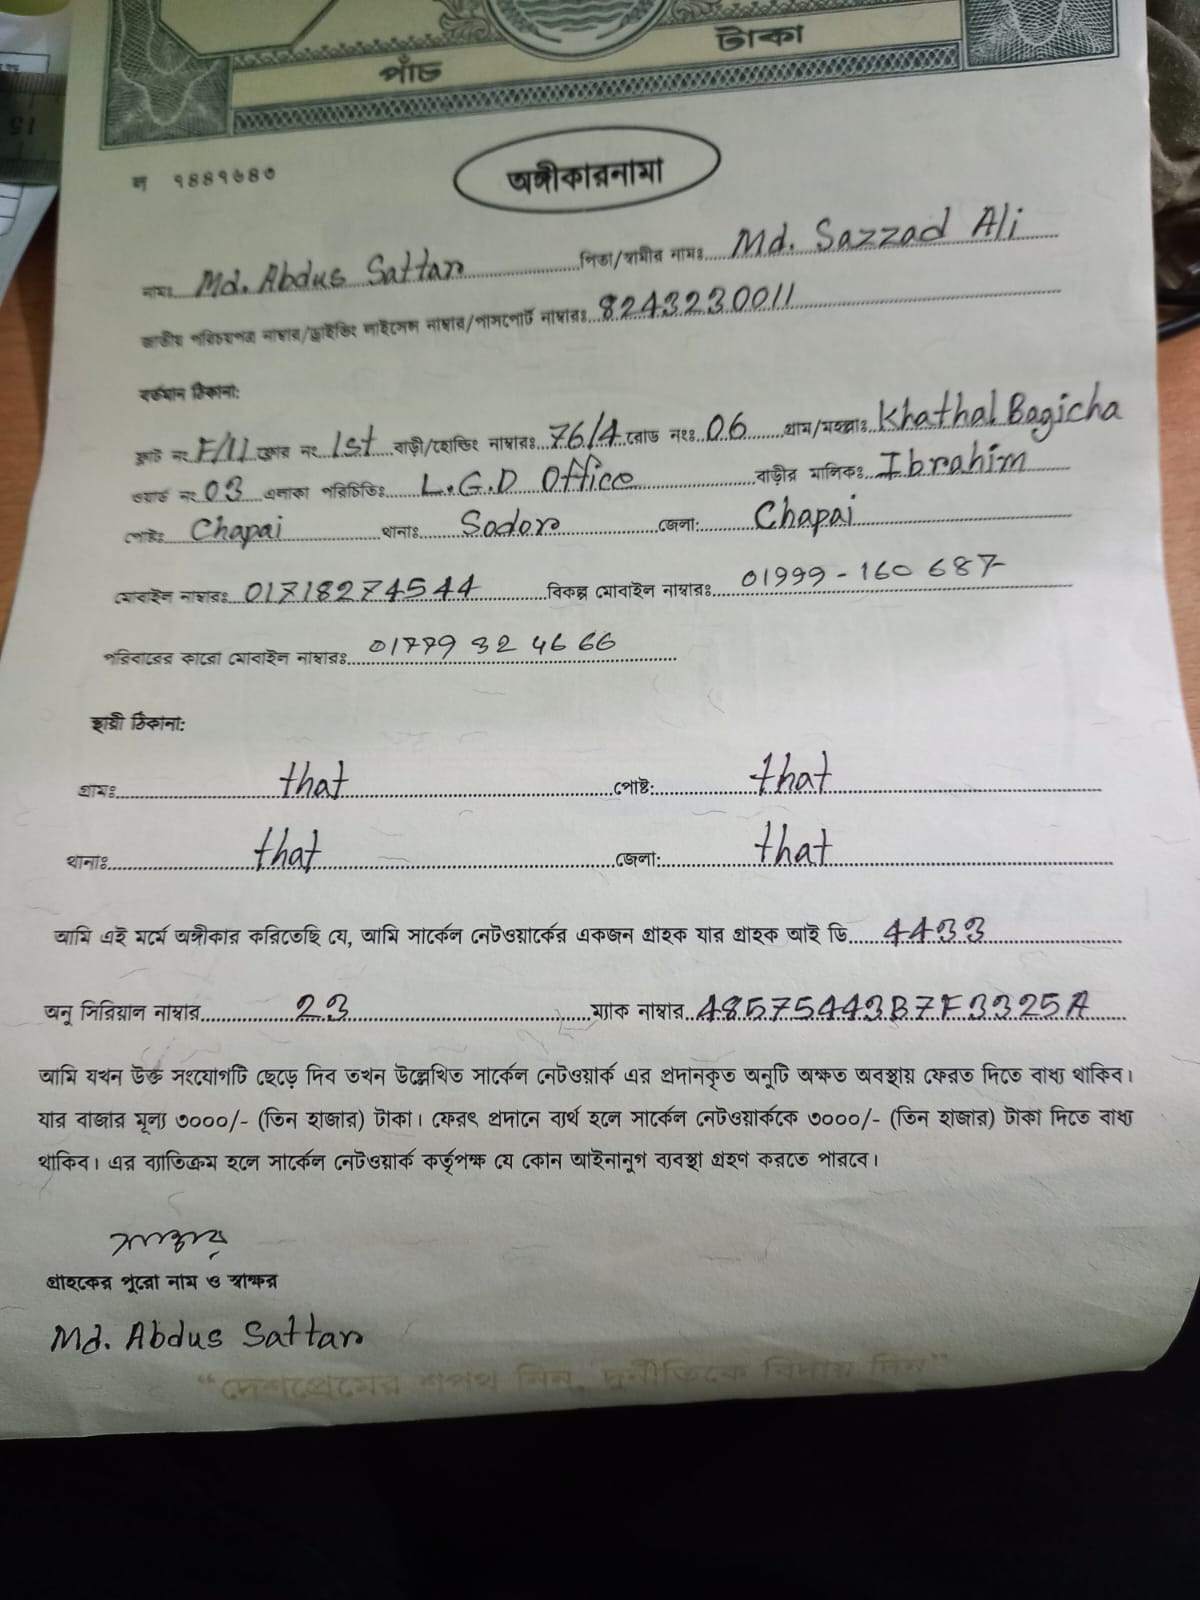 পাঁচ টাকা
ন ৭৪৪৭৬৪৩
অঙ্গীকারনামা
নামঃ Md. Abdus Sattar পিতা/স্বামীর নামঃ Md. Sazzad Ali
জাতীয় পরিচয়পত্র নাম্বার/ড্রাইভিং লাইসেন্স নাম্বার/পাসপোর্ট নাম্বারঃ 8243230011
বর্তমান ঠিকানা:
ফ্লাট নং F/11 ফ্লোর নং 1st বাড়ী/হোল্ডিং নাম্বারঃ 76/4 রোড নংঃ 06 গ্রাম/মহল্লাঃ Khathal Bagicha
ওয়ার্ড নং 03 এলাকা পরিচিতিঃ L.G.D Office বাড়ীর মালিকঃ Ibrahim
পোষ্টঃ Chapai থানাঃ Sodor জেলা: Chapai
মোবাইল নাম্বারঃ 01718274544 বিকল্প মোবাইল নাম্বারঃ 01999-160 687
পরিবারের কারো মোবাইল নাম্বারঃ 01779 32 46 66
স্থায়ী ঠিকানা:
গ্রামঃ that পোষ্ট: that
থানাঃ that জেলা: that
আমি এই মর্মে অঙ্গীকার করিতেছি যে, আমি সার্কেল নেটওয়ার্কের একজন গ্রাহক যার গ্রাহক আই ডি 4433
অনু সিরিয়াল নাম্বার 23 ম্যাক নাম্বার 48575443B7F3325A
আমি যখন উক্ত সংযোগটি ছেড়ে দিব তখন উল্লেখিত সার্কেল নেটওয়ার্ক এর প্রদানকৃত অনুটি অক্ষত অবস্থায় ফেরত দিতে বাধ্য থাকিব।
যার বাজার মূল্য ৩০০০/- (তিন হাজার) টাকা। ফেরৎ প্রদানে ব্যর্থ হলে সার্কেল নেটওয়ার্ককে ৩০০০/- (তিন হাজার) টাকা দিতে বাধ্য
থাকিব। এর ব্যাতিক্রম হলে সার্কেল নেটওয়ার্ক কর্তৃপক্ষ যে কোন আইনানুগ ব্যবস্থা গ্রহণ করতে পারবে।
সাত্তার
গ্রাহকের পুরো নাম ও স্বাক্ষর
Md. Abdus Sattar
“দেশপ্রেমের শপথ নিন, দুর্নীতিকে বিদায় দিন”